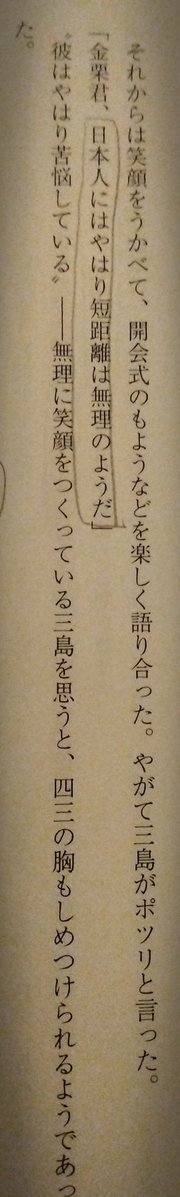 それからは笑顔をうかべて、開会式のもようなどを楽しく語り合った。やがて三島がポツリと言った。
「金栗君、日本人にはやはり短距離は無理のようだ」
〝彼はやはり苦悩している〟――無理に笑顔をつくっている三島を思うと、四三の胸もしめつけられるようであっ
た。